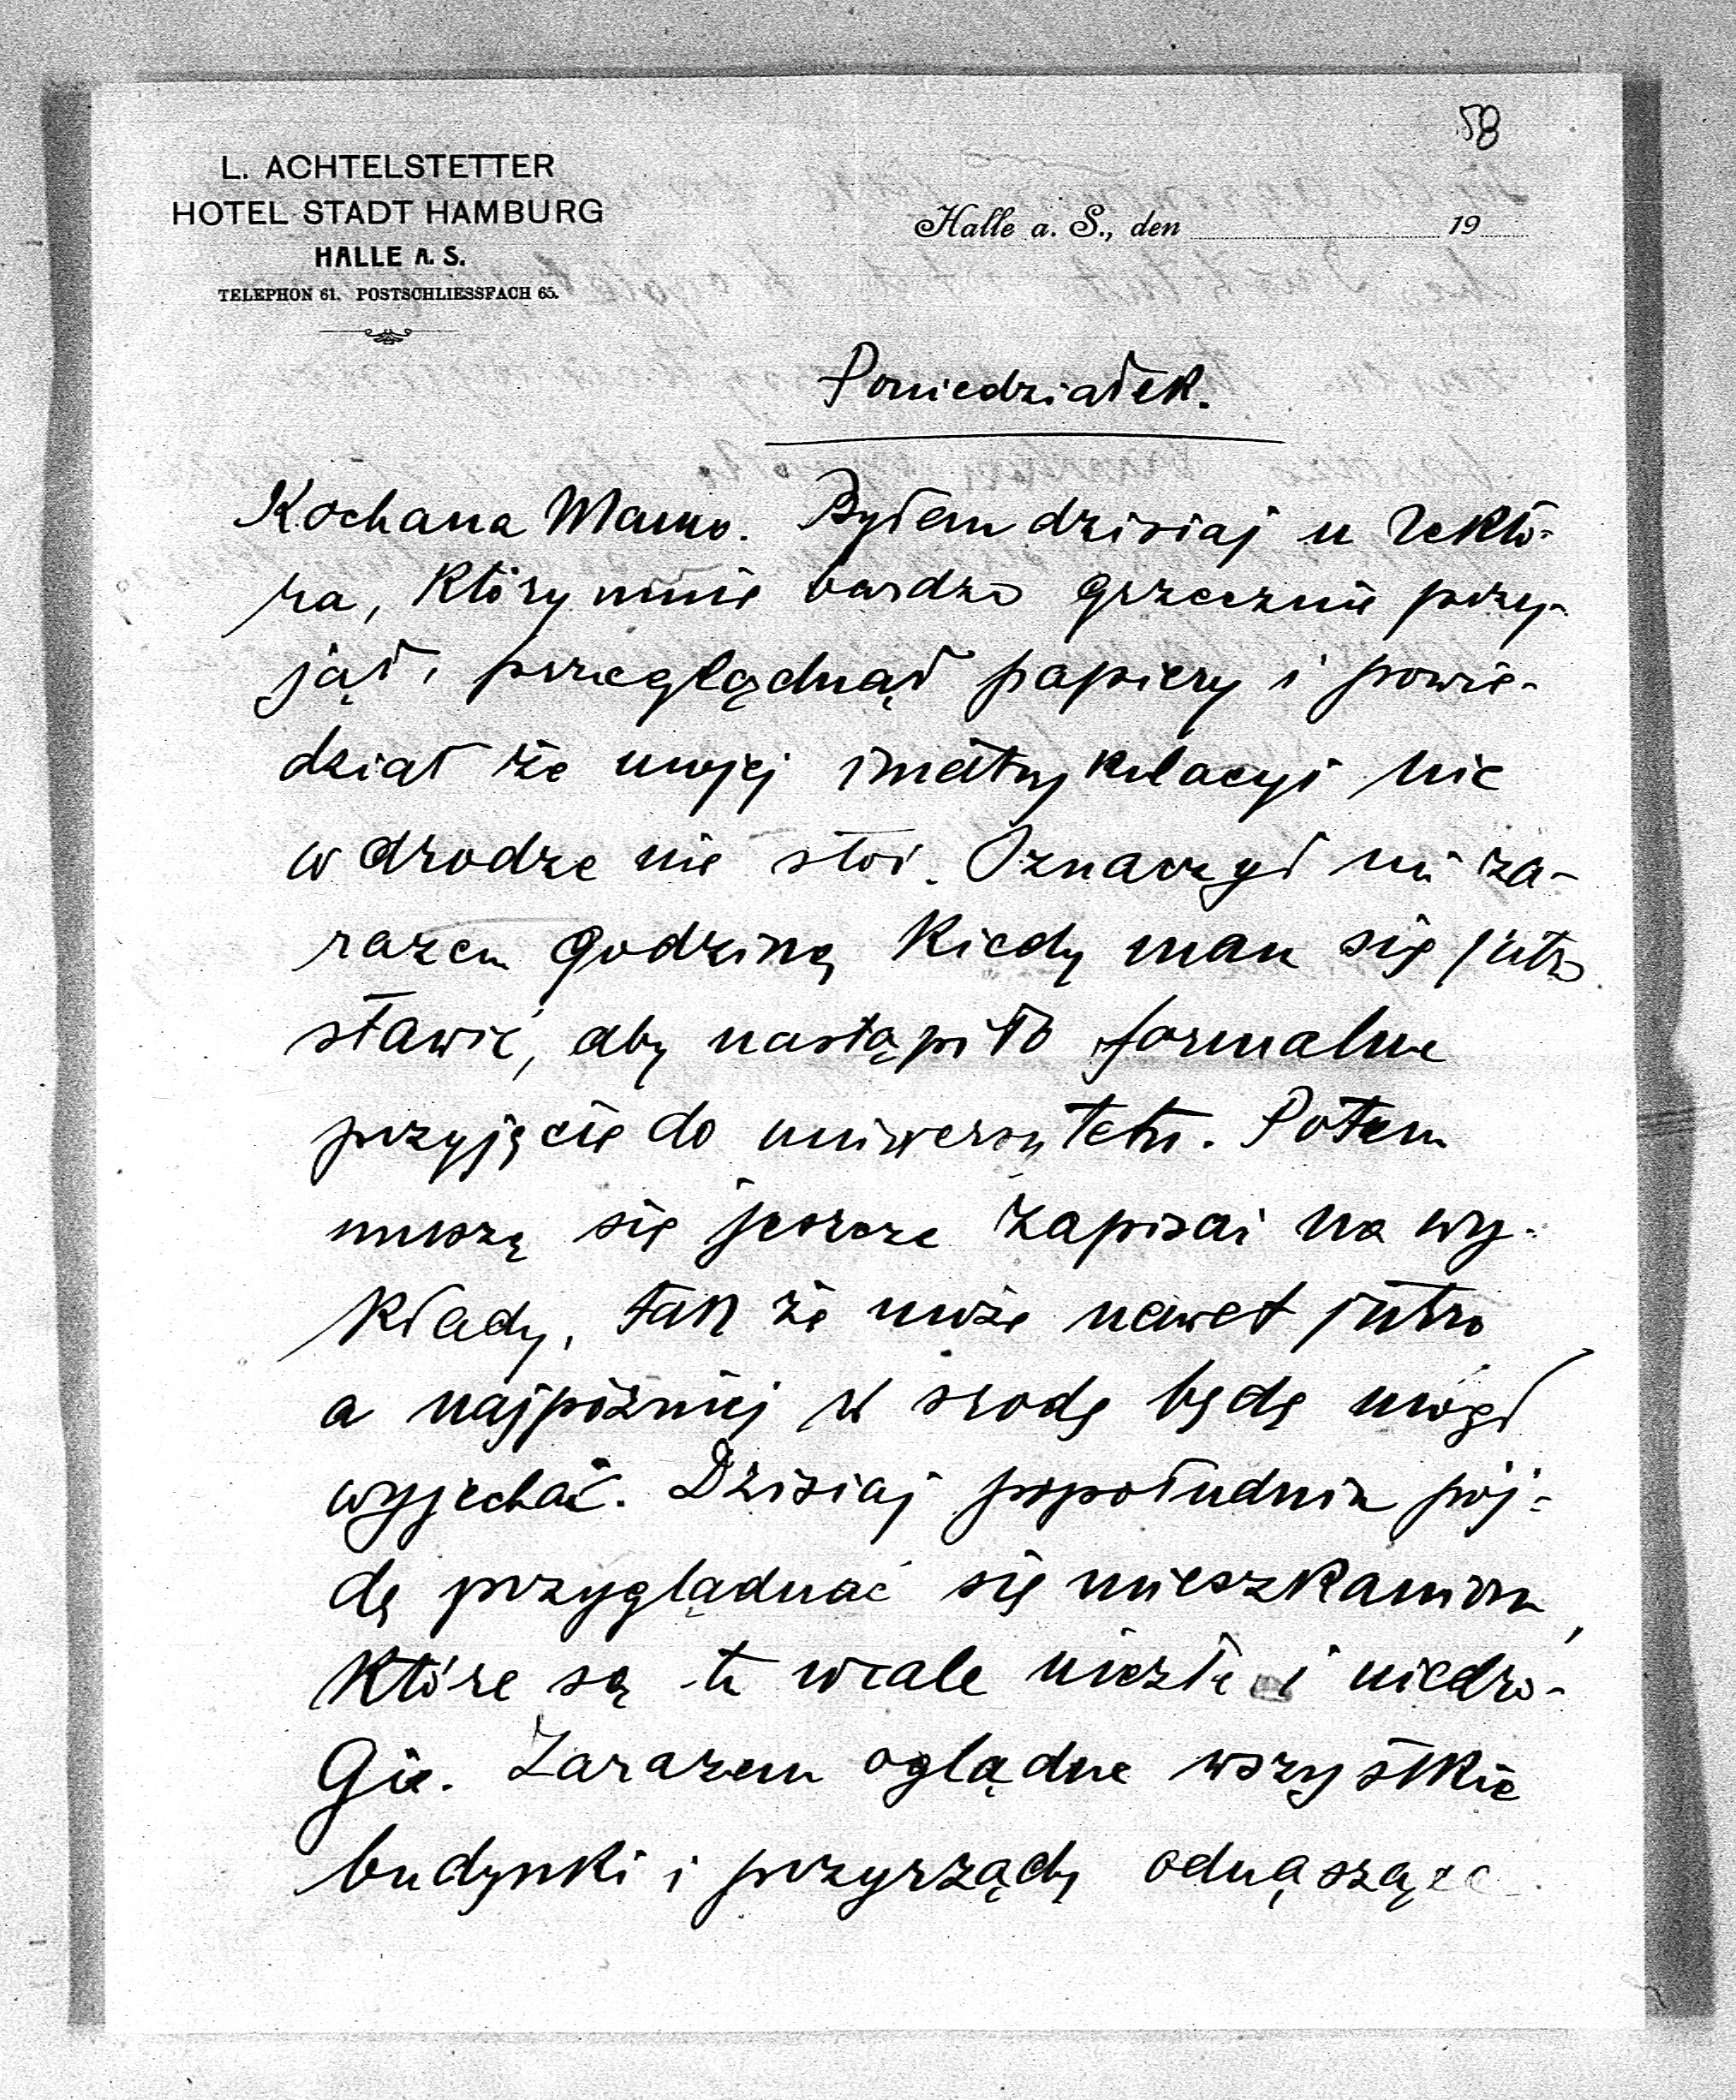 58
L. ACHTELSTETTER
HOTEL STADT HAMBURG
HALLE A. S.
TELEPHON 61. POSTSCHLIESSFACH 65.
Halle a. S., den 19
Poniedziałek.
Kochana Mamo. Byłem dzisiaj u rekto-
ra, który mnie bardzo grzecznie przy-
jął, przeglądnął papiery i powie-
dział że mojej imatrykulacyi nic
w drodze nie stoi. Oznaczył mi za-
razem godzinę kiedy mam się jutro
stawić, aby nastąpiło formalne
przyjęcie do uniwersytetu. Potem
muszę się jeszcze zapisać na wy-
kłady, tak że może nawet jutro
a najpóźniej w srodę będę mógł
wyjechać. Dzisiaj popołudniu pój-
dę przyglądnać się mieszkaniom,
które są tu wcale niezłe i niedro-
gie. Zarazem oglądne wszystkie
budynki i przyrządy